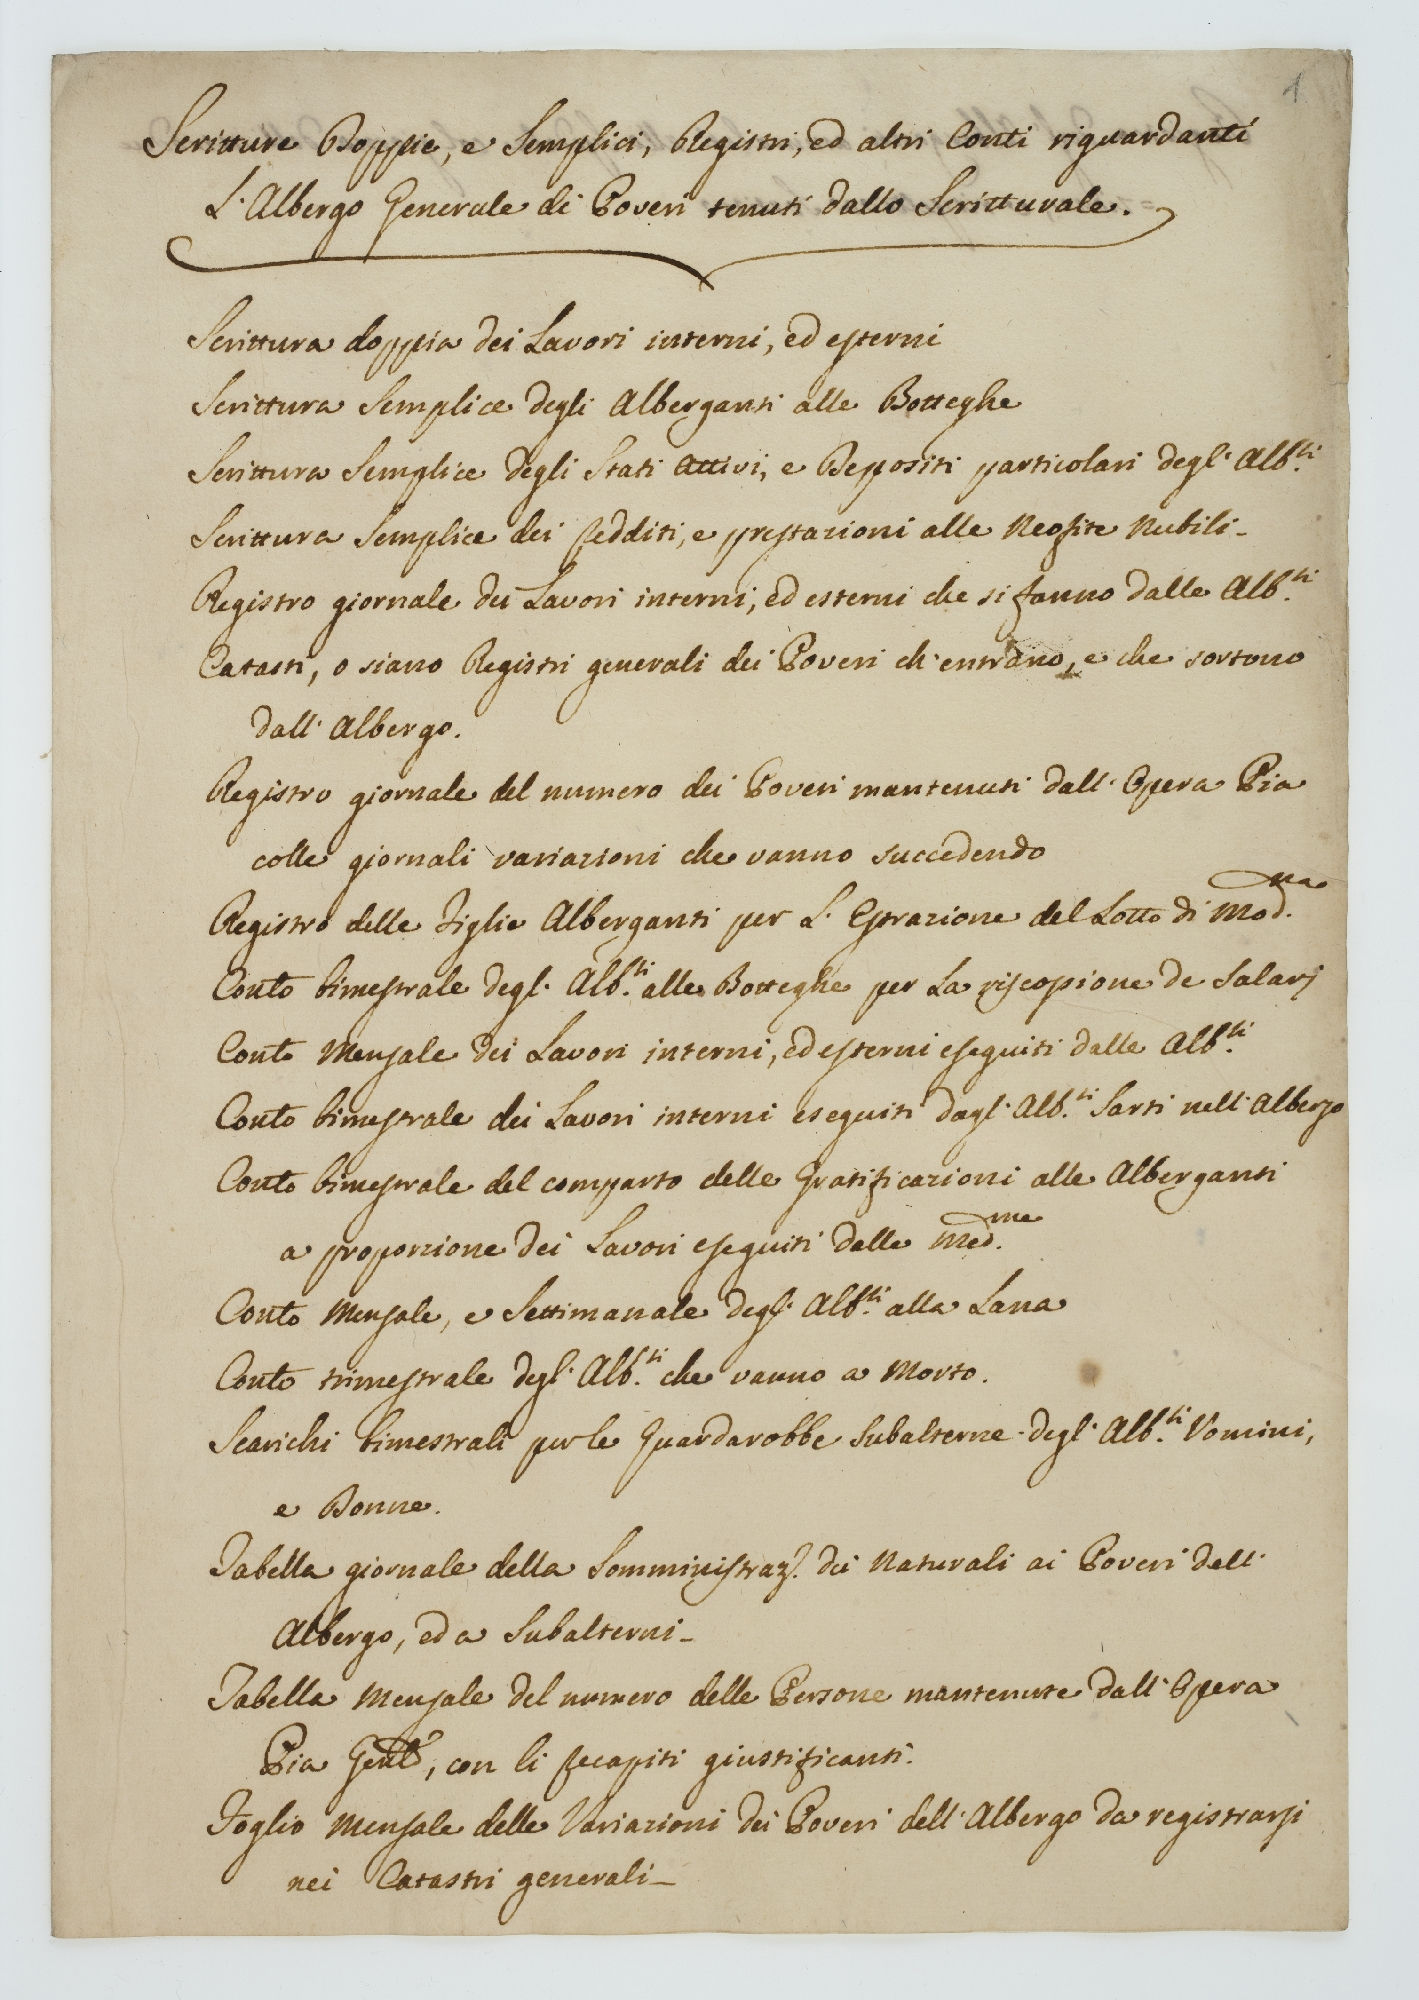 1
Scritture Doppie, e Semplici, Registri, ed altri Conti riguardanti
L'Albergo Generale di Poveri tenuti dallo Scritturale.
Scrittura doppia dei Lavori interni, ed esterni
Scrittura Semplice degli Alberganti alle Botteghe
Scrittura Semplice degli Stati Attivi, e Depositi particolari degl' Alb.ti
Scrittura Semplice dei Redditi, e prestazioni alle Neofite Nubili_
Registro giornale dei Lavori interni, ed esterni che si fanno dalle Alb.ti
Catasti, o siano Registri generali dei Poveri ch'entrano, e che sortono
dall' Albergo.
Registro giornale del numero dei Poveri mantenuti dall' Opera Pia
colle giornali variazioni che vanno succedendo
Registro delle Figlie Alberganti per L' Estrazione del Lotto di Mod.na
Conto bimestrale degl' Alb.ti alle Botteghe per La riscossione de Salarj
Conto Mensale dei Lavori interni, ed esterni eseguiti dalle Alb.ti
Conto bimestrale dei Lavori interni eseguiti dagl' Alb.ti Sarti nell' Albergo
Conto bimestrale del comparto delle Gratificazioni alle Alberganti
a proporzione dei Lavori eseguiti dalle Med.me
Conto Mensale, e Settimanale degl' Alb.ti alla Lana
Conto trimestrale degl' Alb.ti che vanno a Morto.
Scarichi bimestrali per le Guardarobbe Subalterne degl' Alb.ti Uomini,
e Donne.
Tabella giornale della Somministraz.e dei Naturali ai Poveri dell'
Albergo, ed a Subalterni_
Tabella Mensale del numero delle Persone mantenute dall' Opera
Pia Gen.le, con li recapiti giustificanti.
Foglio Mensale delle Variazioni dei Poveri dell' Albergo da registrarsi
nei Catastri generali_